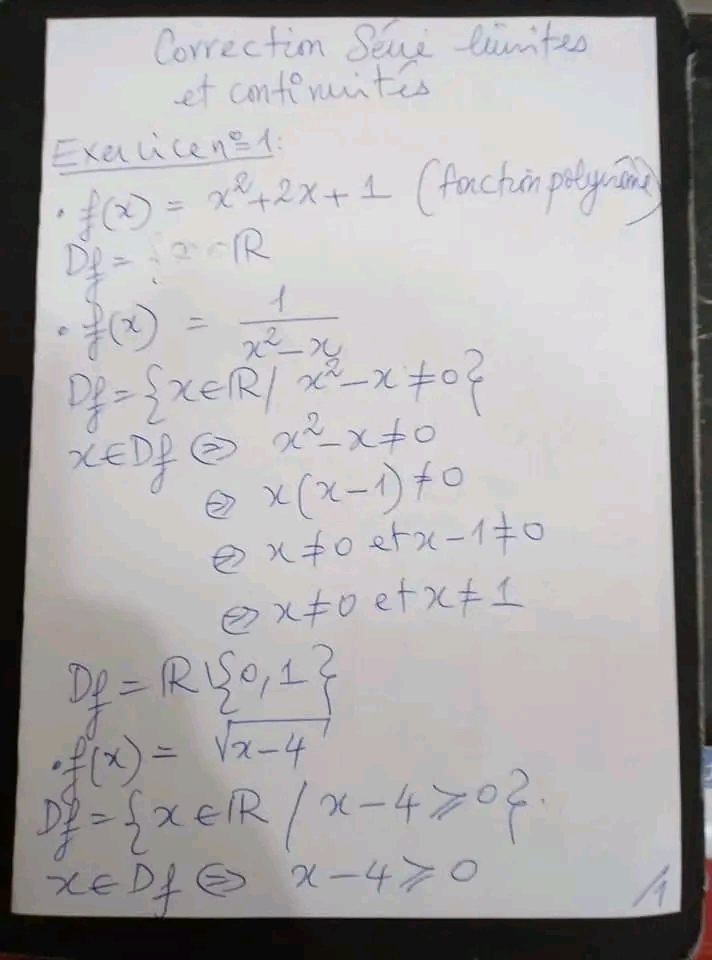 Correction Série limites
et continuités
Exercice n°1:
• f(x) = x²+2x+1 (fonction polynôme)
Df = ℝ
• f(x) = 1/(x²-x)
Df = {x∈ℝ / x²-x ≠ 0}
x∈Df ⇔ x²-x ≠ 0
⇔ x(x-1) ≠ 0
⇔ x ≠ 0 et x-1 ≠ 0
⇔ x ≠ 0 et x ≠ 1
Df = ℝ\{0,1}
• f(x) = √(x-4)
Df = {x∈ℝ / x-4 ⩾ 0}.
x∈Df ⇔ x-4 ⩾ 0
/1